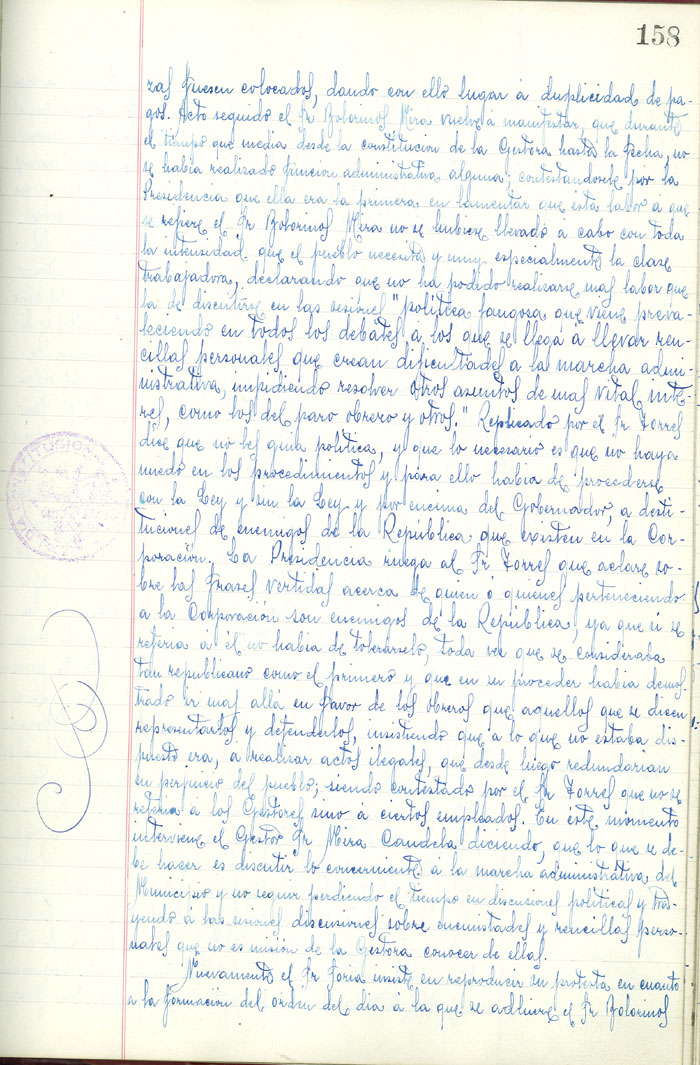 158
zas fuesen colocados, dando con ello lugar á duplicidad de pa-
gos. Acto seguido el Sr Bolorinos Mira vuelve a manifestar, que durante
el tiempo que media desde la constitucion de la Gestora hasta la fecha, no
se habia realizado funcion administrativa alguna; contestandosele por la
Presidencia que ella era la primera en lamentar que esta labor á que
se refiere el Sr Bolorinos Mira no se hubiese llevado a cabo con toda
la intensidad que el pueblo necesita y muy especialmente la clase
trabajadora, declarando que no ha podido realizarse mas labor que
la de discutirse en las sesiones "politica fangosa que viene preva-
leciendo en todos los debates á los que se llega á llevar ren-
cillas personales que crean dificultades a la marcha admi-
nistrativa, impidiendo resolver otros asuntos de mas vital inte-
res, como los del paro obrero y otros." Replicado por el Sr Torres
dice que no les guia politica, y que lo necesario es que no haya
miedo en los procedimientos y para ello habia de procederse
con la Ley y sin la Ley y por encima del Gobernador, a desti-
tuciones de enemigos de la República que existen en la Cor-
poración. La Presidencia ruega al Sr Torres que aclare so-
bre las frases vertidas acerca de quien ó quienes perteneciendo
a la Corporación son enemigos de la República, ya que si se
referia á él no habia de tolerarselo, toda vez que se consideraba
tan republicano como el primero y que en su proceder habia demos-
trado ir mas allá en favor de los obreros que aquellos que se dicen
representarlos y defenderlos, insistiendo que a lo que no estaba dis-
puesto era, a realizar actos ilegales, que desde luego redundarian
en perjuicio del pueblo; siendo contestado por el Sr Torres que no se
referia á los Gestores sino á ciertos empleados. En este momento
interviene el Gestor Sr Mira Candela diciendo, que lo que se de-
be hacer es discutir lo concerniente á la marcha administrativa del
Municipio y no seguir perdiendo el tiempo en discusiones politicas y tra-
yendo á las sesiones discusiones sobre enemistades y rencillas perso-
nales que no es mision de la Gestora conocer de ellas.
Nuevamente el Sr Soria insiste en reproducir su protesta en cuanto
a la formación del orden del dia á la que se adhiere el Sr Bolorinos